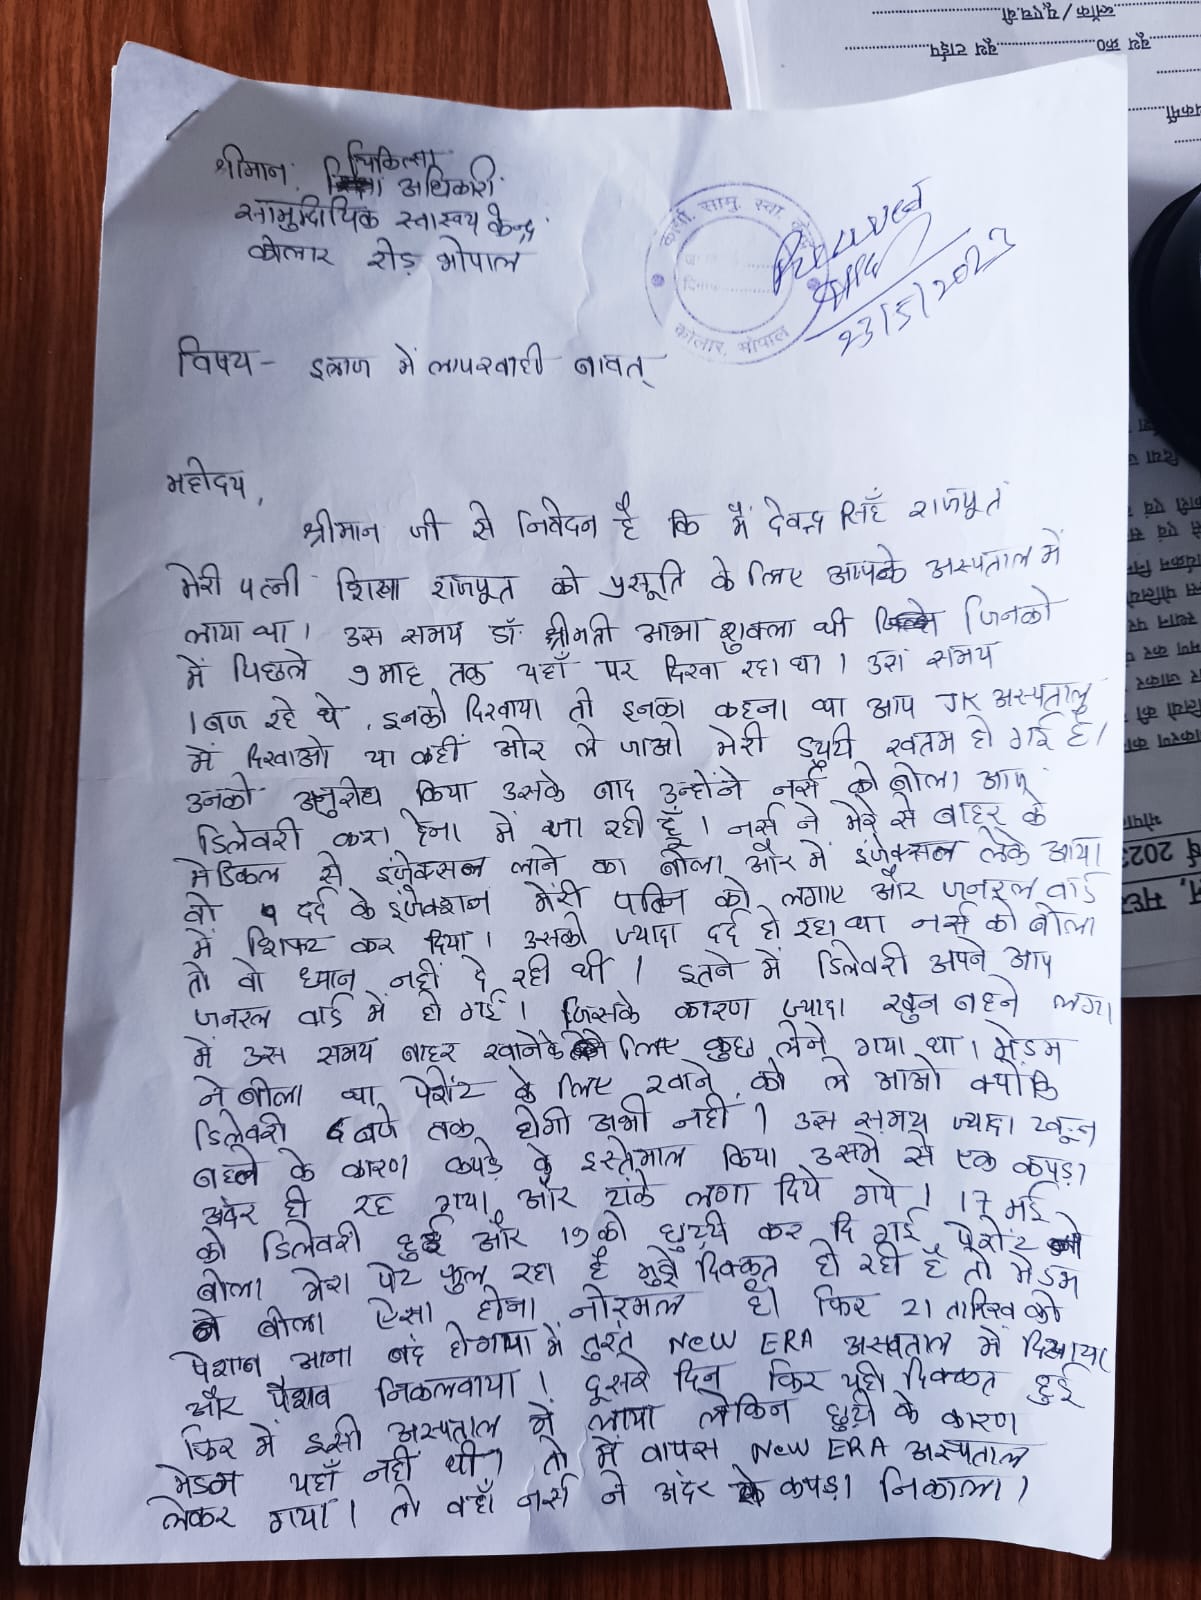 श्रीमान. चिकित्सा
अधिकारी
सामुदायिक स्वास्थ्य केन्द्र
कोलार रोड़ भोपाल
सामु. स्वा.
कोलार, भोपाल
23/5/2023
विषय - इलाज में लापरवाही बावत्
महोदय,
श्रीमान जी से निवेदन है कि मैं देवेन्द्र सिंह राजपूत
मेरी पत्नी शिखा राजपूत को प्रसूति के लिए आपके अस्पताल में
लाया था। उस समय डॉ. श्रीमती आभा शुक्ला थी जिनको
में पिछले 9 माह तक यहाँ पर दिखा रहा था। उस समय
1 बज रहे थे, इनको दिखाया तो इनका कहना था आप JK अस्पताल
में दिखाओ या कहीं ओर ले जाओ मेरी ड्युटी खतम हो गई है।
उनको अनुरोध किया उसके बाद उन्होंने नर्स को बोला आप
डिलेवरी करा देना में आ रही हूँ। नर्स ने मेरे से बाहर के
मेडिकल से इंजेक्सन लाने का बोला और में इंजेक्सन लेके आया
वो दर्द के इंजेक्शन मेरी पत्नि को लगाए और जनरल वार्ड
में शिफ्ट कर दिया। उसको ज्यादा दर्द हो रहा था नर्स को बोला
तो वो ध्यान नहीं दे रही थी। इतने में डिलेवरी अपने आप
जनरल वार्ड में हो गई। जिसके कारण ज्यादा खुन बहने लगा
में उस समय बाहर खानेके लिए कुछ लेने गया था। मेडम
ने बोला था पेशेंट के लिए खाने को ले आओ क्योंकि
डिलेवरी 6 बजे तक होगी अभी नहीं। उस समय ज्यादा खून
बहने के कारण कपड़े के इस्तेमाल किया उसमे से एक कपड़ा
अंदर ही रह गया और टांके लगा दिये गये। 17 मई
को डिलेवरी हुई और 19 को छुट्टी कर दि गई पेशेंट
बोला मेरा पेट फुल रहा है मुझे दिक्कत हो रही है तो मेडम
ने बोला ऐसा होना नोरमल है। फिर 21 तारिख को
पेशाब आना बंद होगया में तुरंत NEW ERA अस्पताल में दिखाया
और पैशाब निकलवाया। दूसरे दिन फिर यही दिक्कत हुई
फिर में इसी अस्पताल में लाया लेकिन छुट्टी के कारण
मेडम यहाँ नहीं थी। तो में वापस NEW ERA अस्पताल
लेकर गया। तो वहाँ नर्स ने अंदर से कपड़ा निकाला।